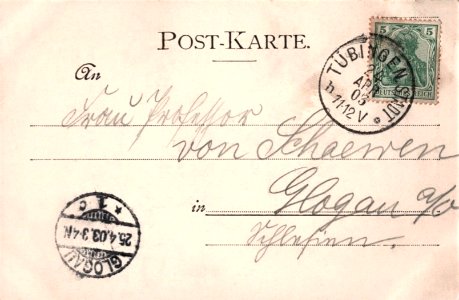 POST-KARTE.
An
Frau Professor
von Schaewen
in Glogau a/o
Schlesien.
5 5
DEUTSCHES REICH
TÜBINGEN STADT
APR
03
11-12 V
GLOGAU
25.4.03.3-4N
* 1 c